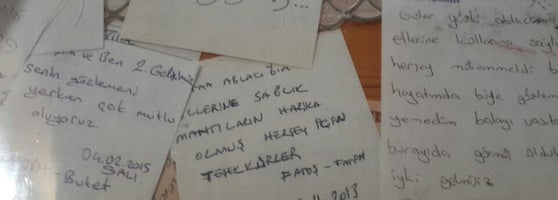 ve Ben 2. Gelişimiz
senin gözlemeni
yerken çok mutlu
oluyoruz.
04.02.2015
SALI
Buket
ABLACIĞIM
ELLERİNE SAĞLIK
MANTILARIN HARİKA
OLMUŞ HERŞEY İÇİN
TEŞEKKÜRLER
FATOŞ -
2013
Güler yüzlü ablacım
ellerine kollarına sağlık
herşey mükemmeldi
hayatımda böyle gözleme
yemedim balayı
burayıda görmüş olduk
iyiki gelmişiz